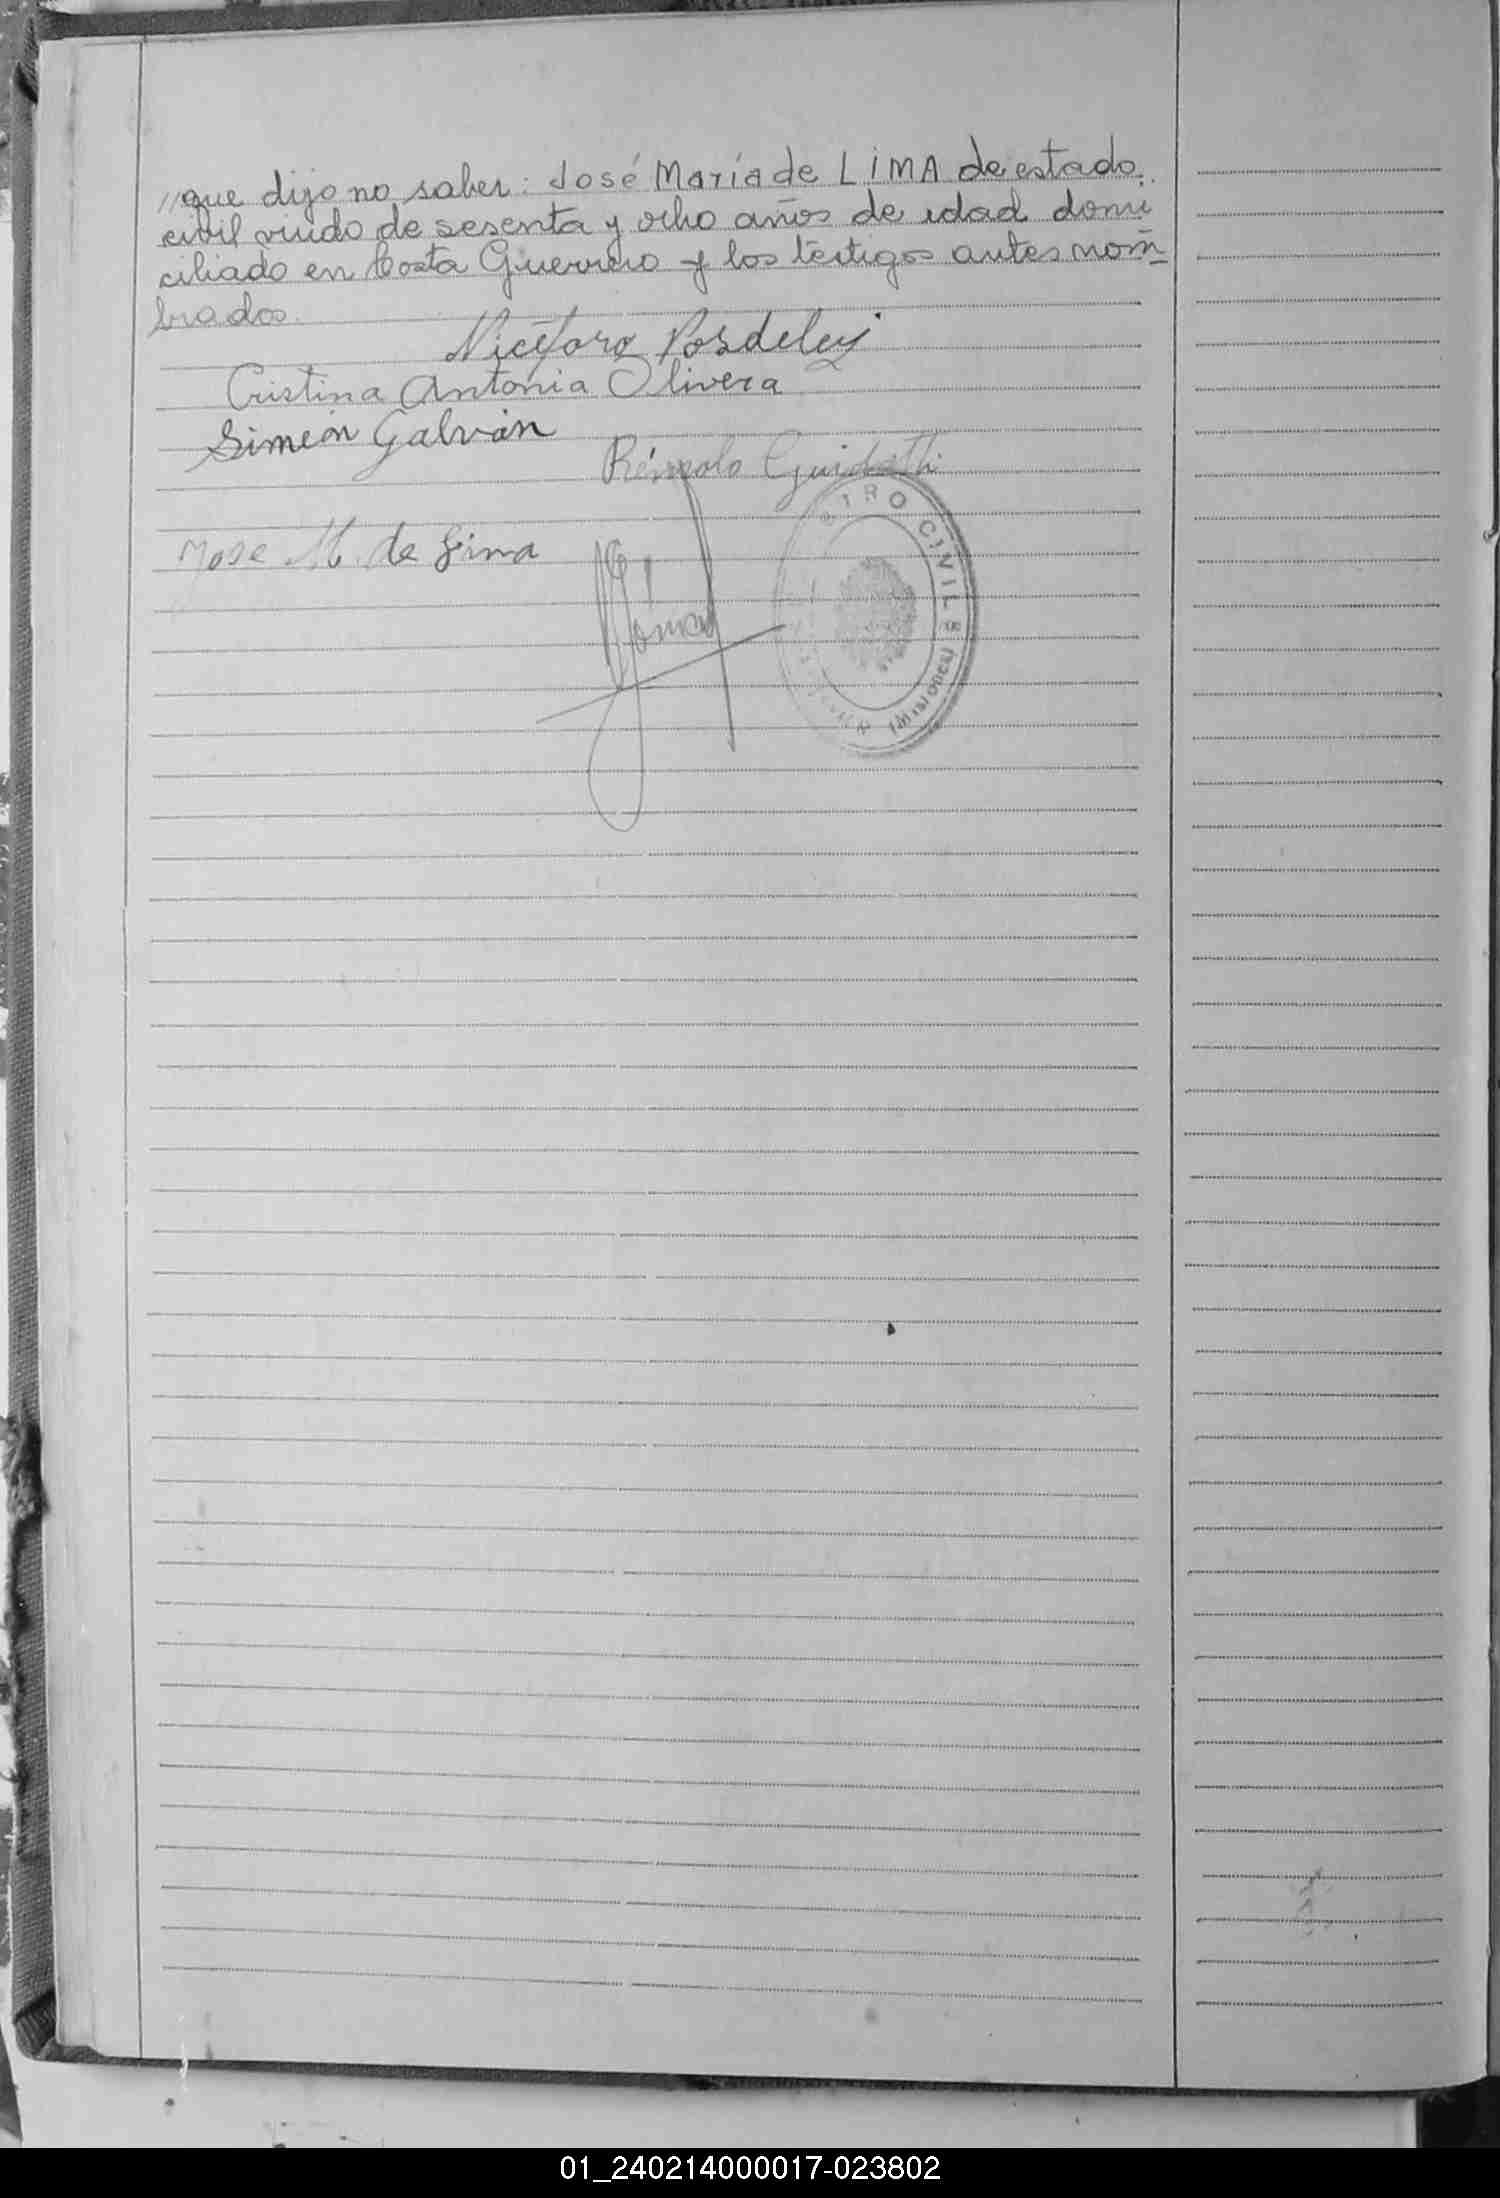 //que dijo no saber: José María de LiMA de estado
civil viudo de sesenta y ocho años de edad domi
ciliado en Costa Guerrero y los testigos antes nom=
brados.
Nicéforo Posdeley
Cristina Antonia Olivera
Simeón Galván
Rómolo Guidetti
Jose M. de Lima
Gómez
STRO CIVIL
(Misiones)
01_240214000017-023802